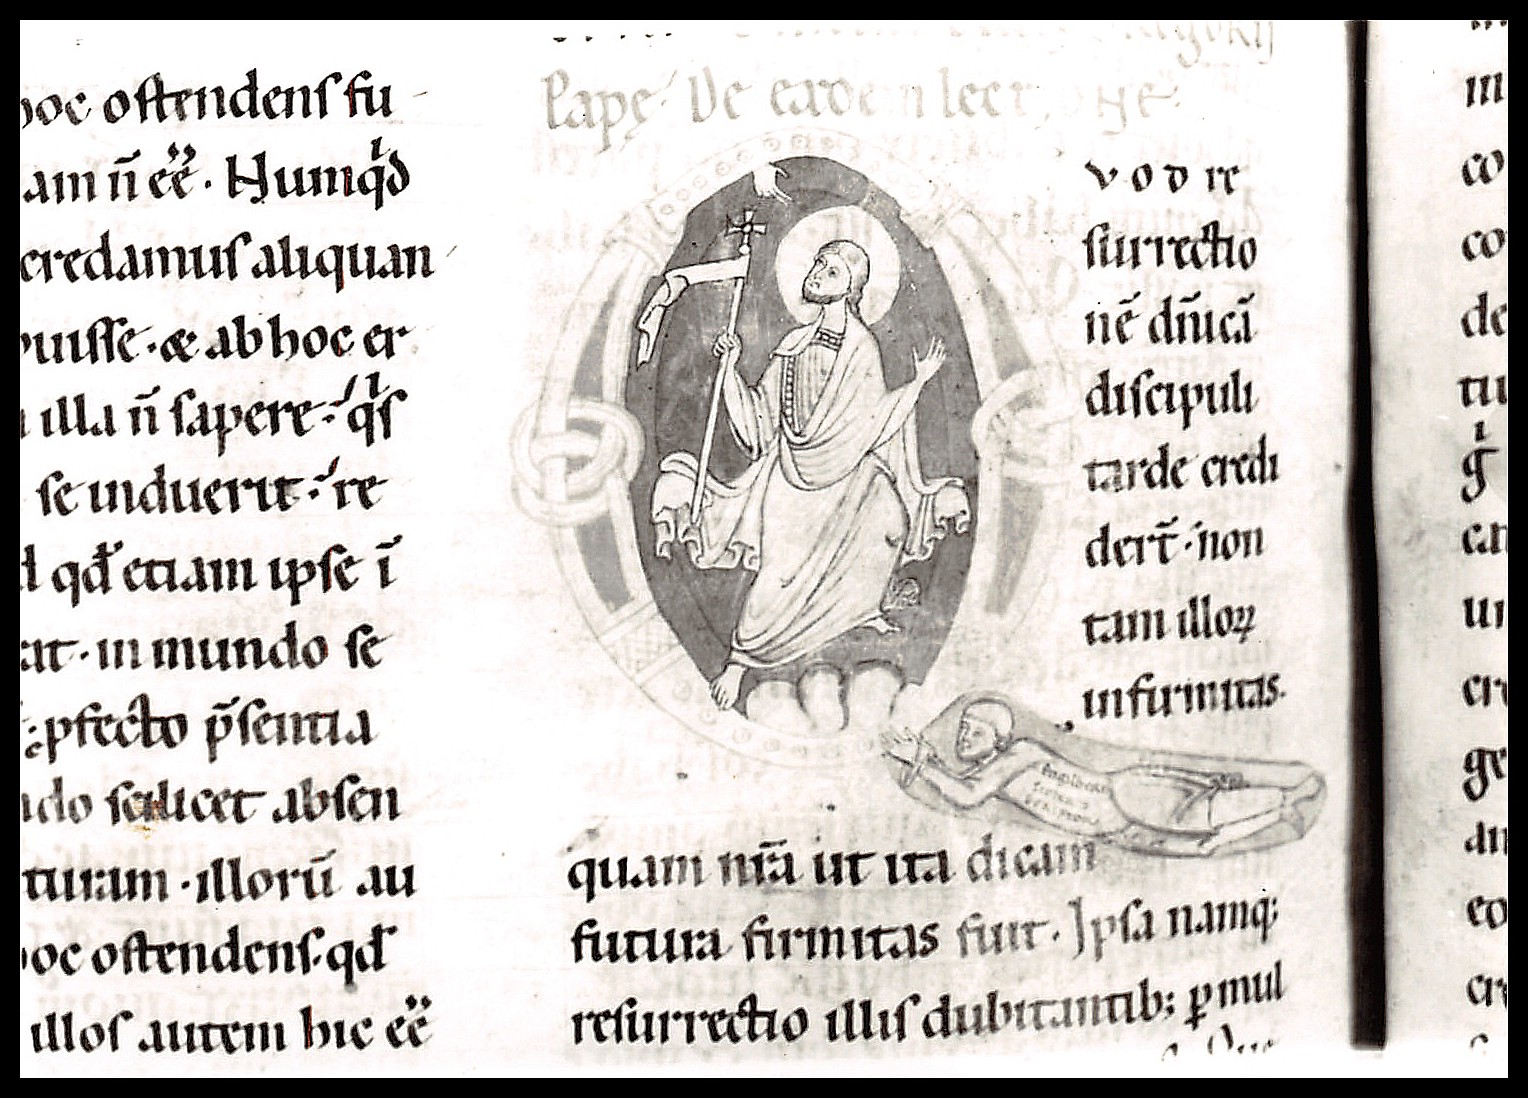 hoc ostendens fu
am n̄ eē. Numq̍d
credamus aliquan
puisse. & ab hoc er
illa n̄ sapere. q̍s
se induerit. re
qđ etiam ipse ī
at. in mundo se
ꝑfecto p̄sentia
do scilicet absen
turam. illorū au
hoc ostendens. qđ
illos autem hic eē
Papę. De eadem lectione.
vod re
surrectio
nē dn̄icā
discipuli
tarde credi
dert̄. non
tam illoꝝ
infirmitas.
quam nr̄a ut ita dicam
futura firmitas fuit. Ipsa namq;
resurrectio illis dubitantib; ꝑ mul